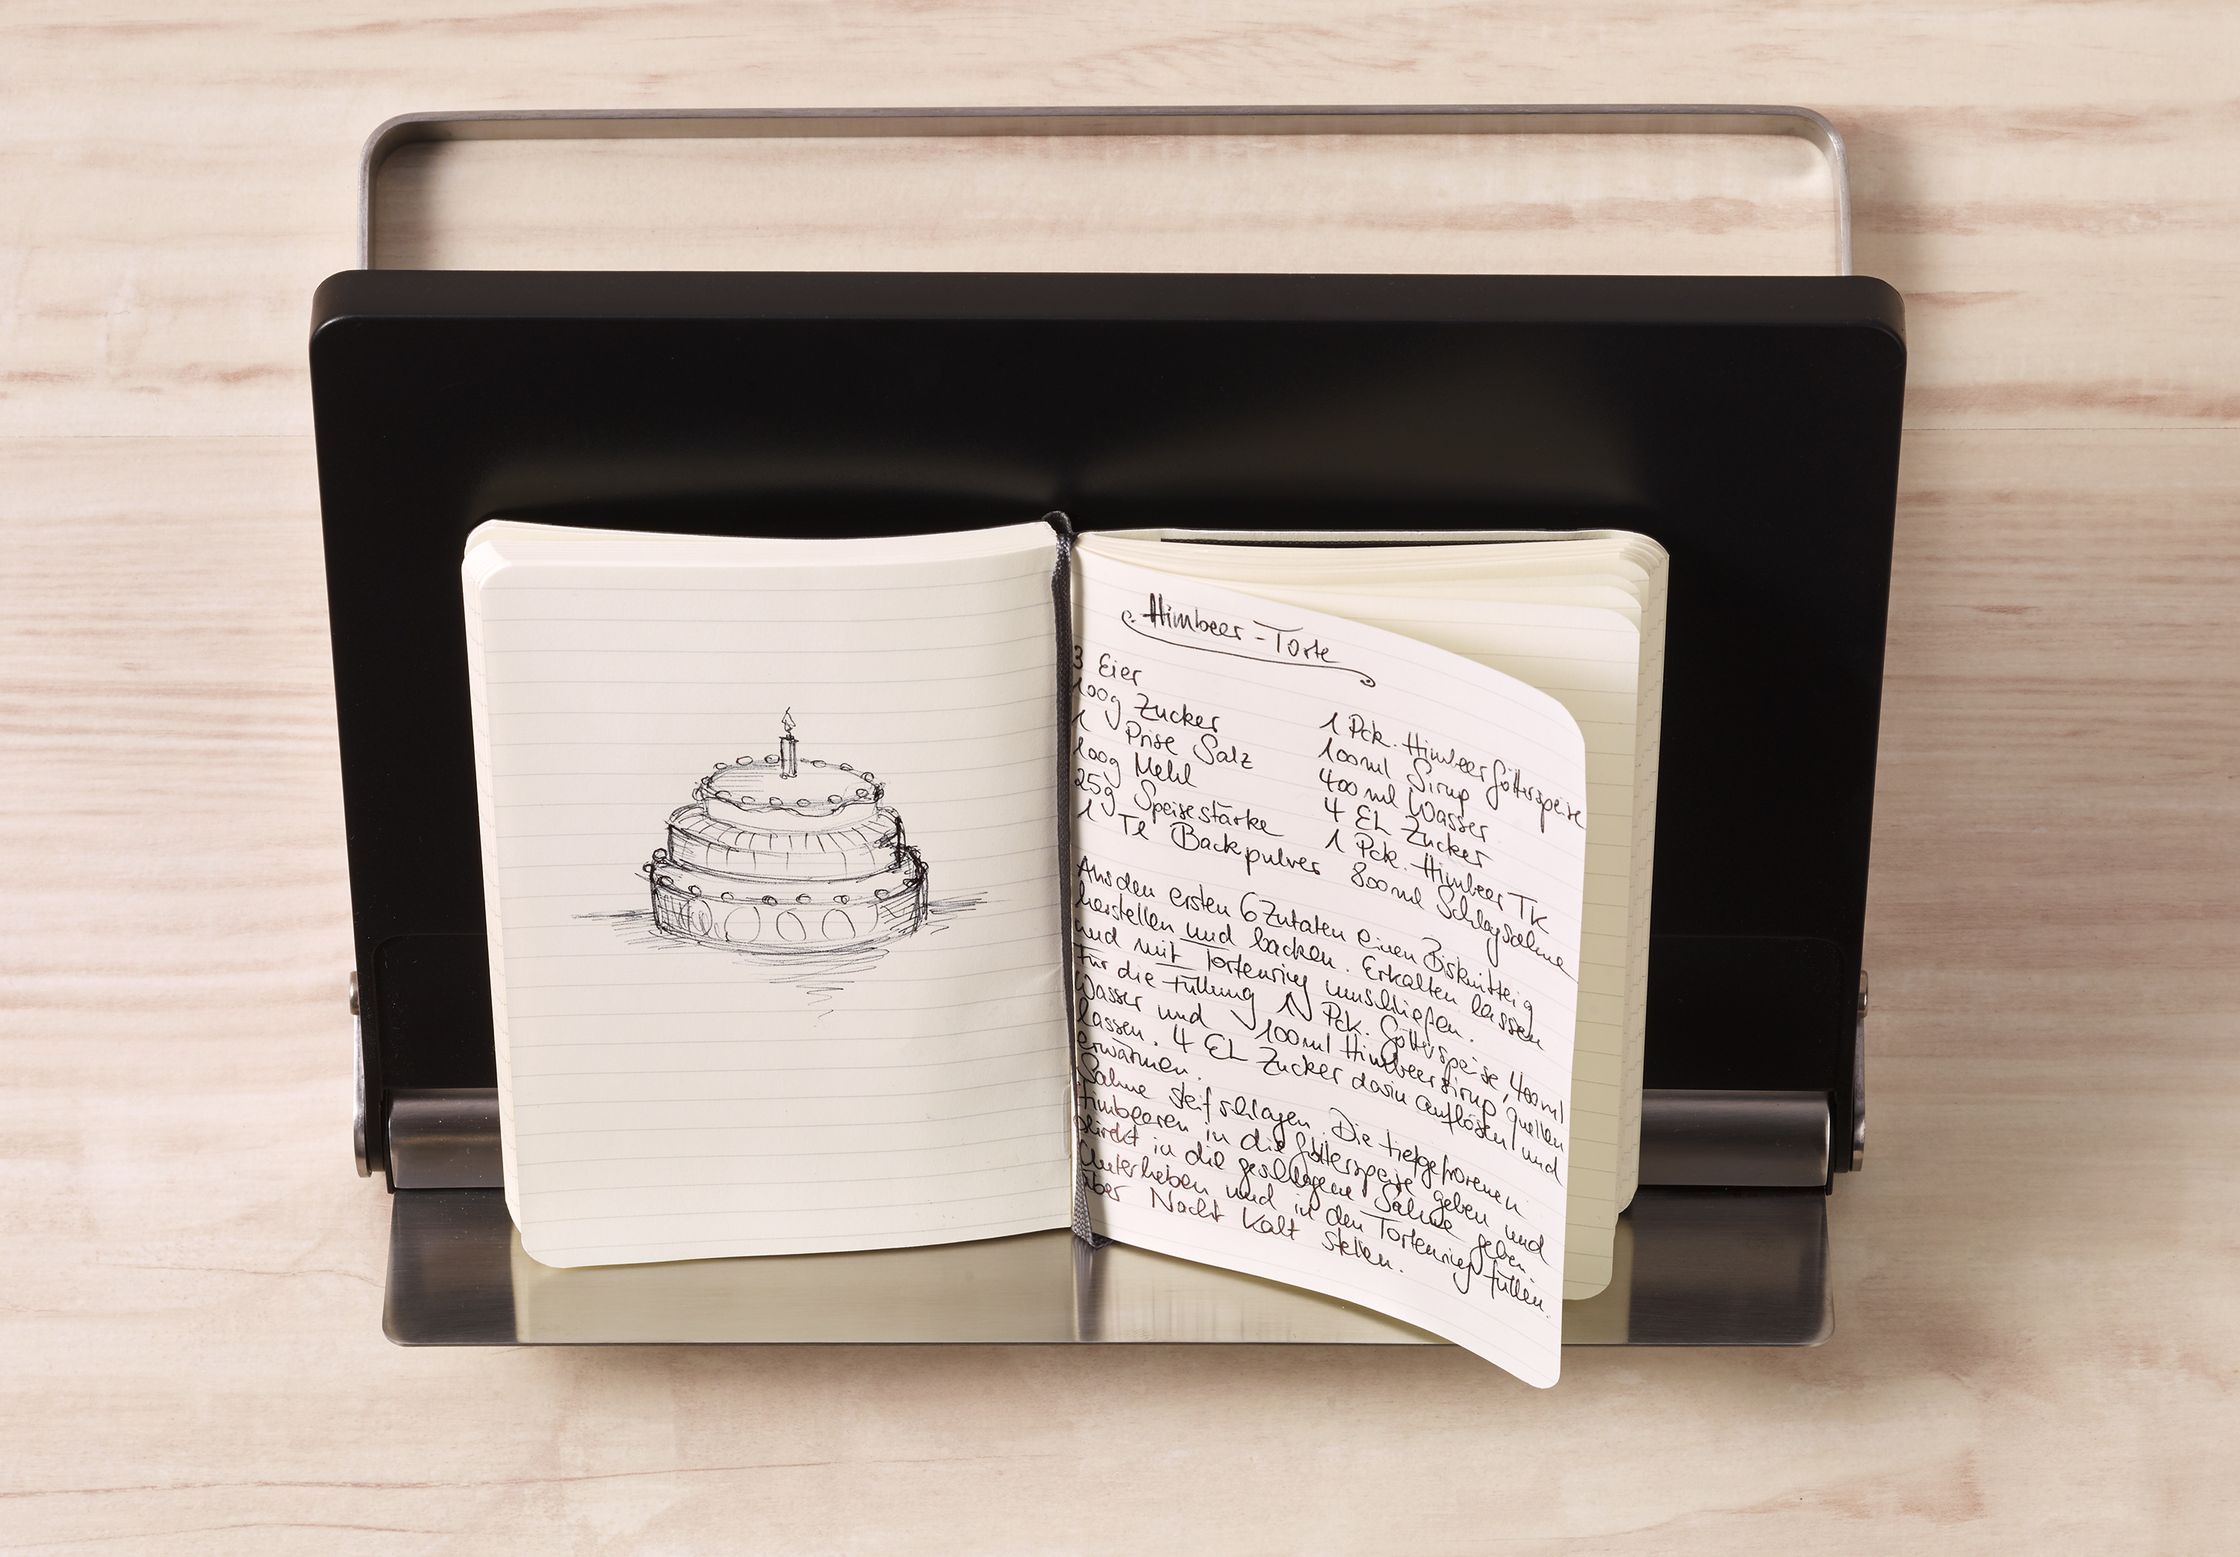 Himbeer-Torte
3 Eier
100g Zucker
1 Prise Salz
100g Mehl
25g Speisestärke
1 Tl Backpulver
1 Pck. Himbeergötterspeise
100ml Sirup
400ml Wasser
4 EL Zucker
1 Pck. Himbeer TK
800ml Schlagsahne
Aus den ersten 6 Zutaten einen Biskuitteig
herstellen und backen. Erkalten lassen
und mit Tortenring umschließen.
Für die Füllung 1 Pck. Götterspeise, 400ml
Wasser und 100ml Himbeersirup, quellen
lassen. 4 EL Zucker darin auflösen und
erwärmen.
Sahne steif schlagen. Die tiefgefrorenen
Himbeeren in die Götterspeise geben und
direkt in die geschlagene Sahne geben.
Unterheben und in den Tortenring füllen.
über Nacht kalt stellen.